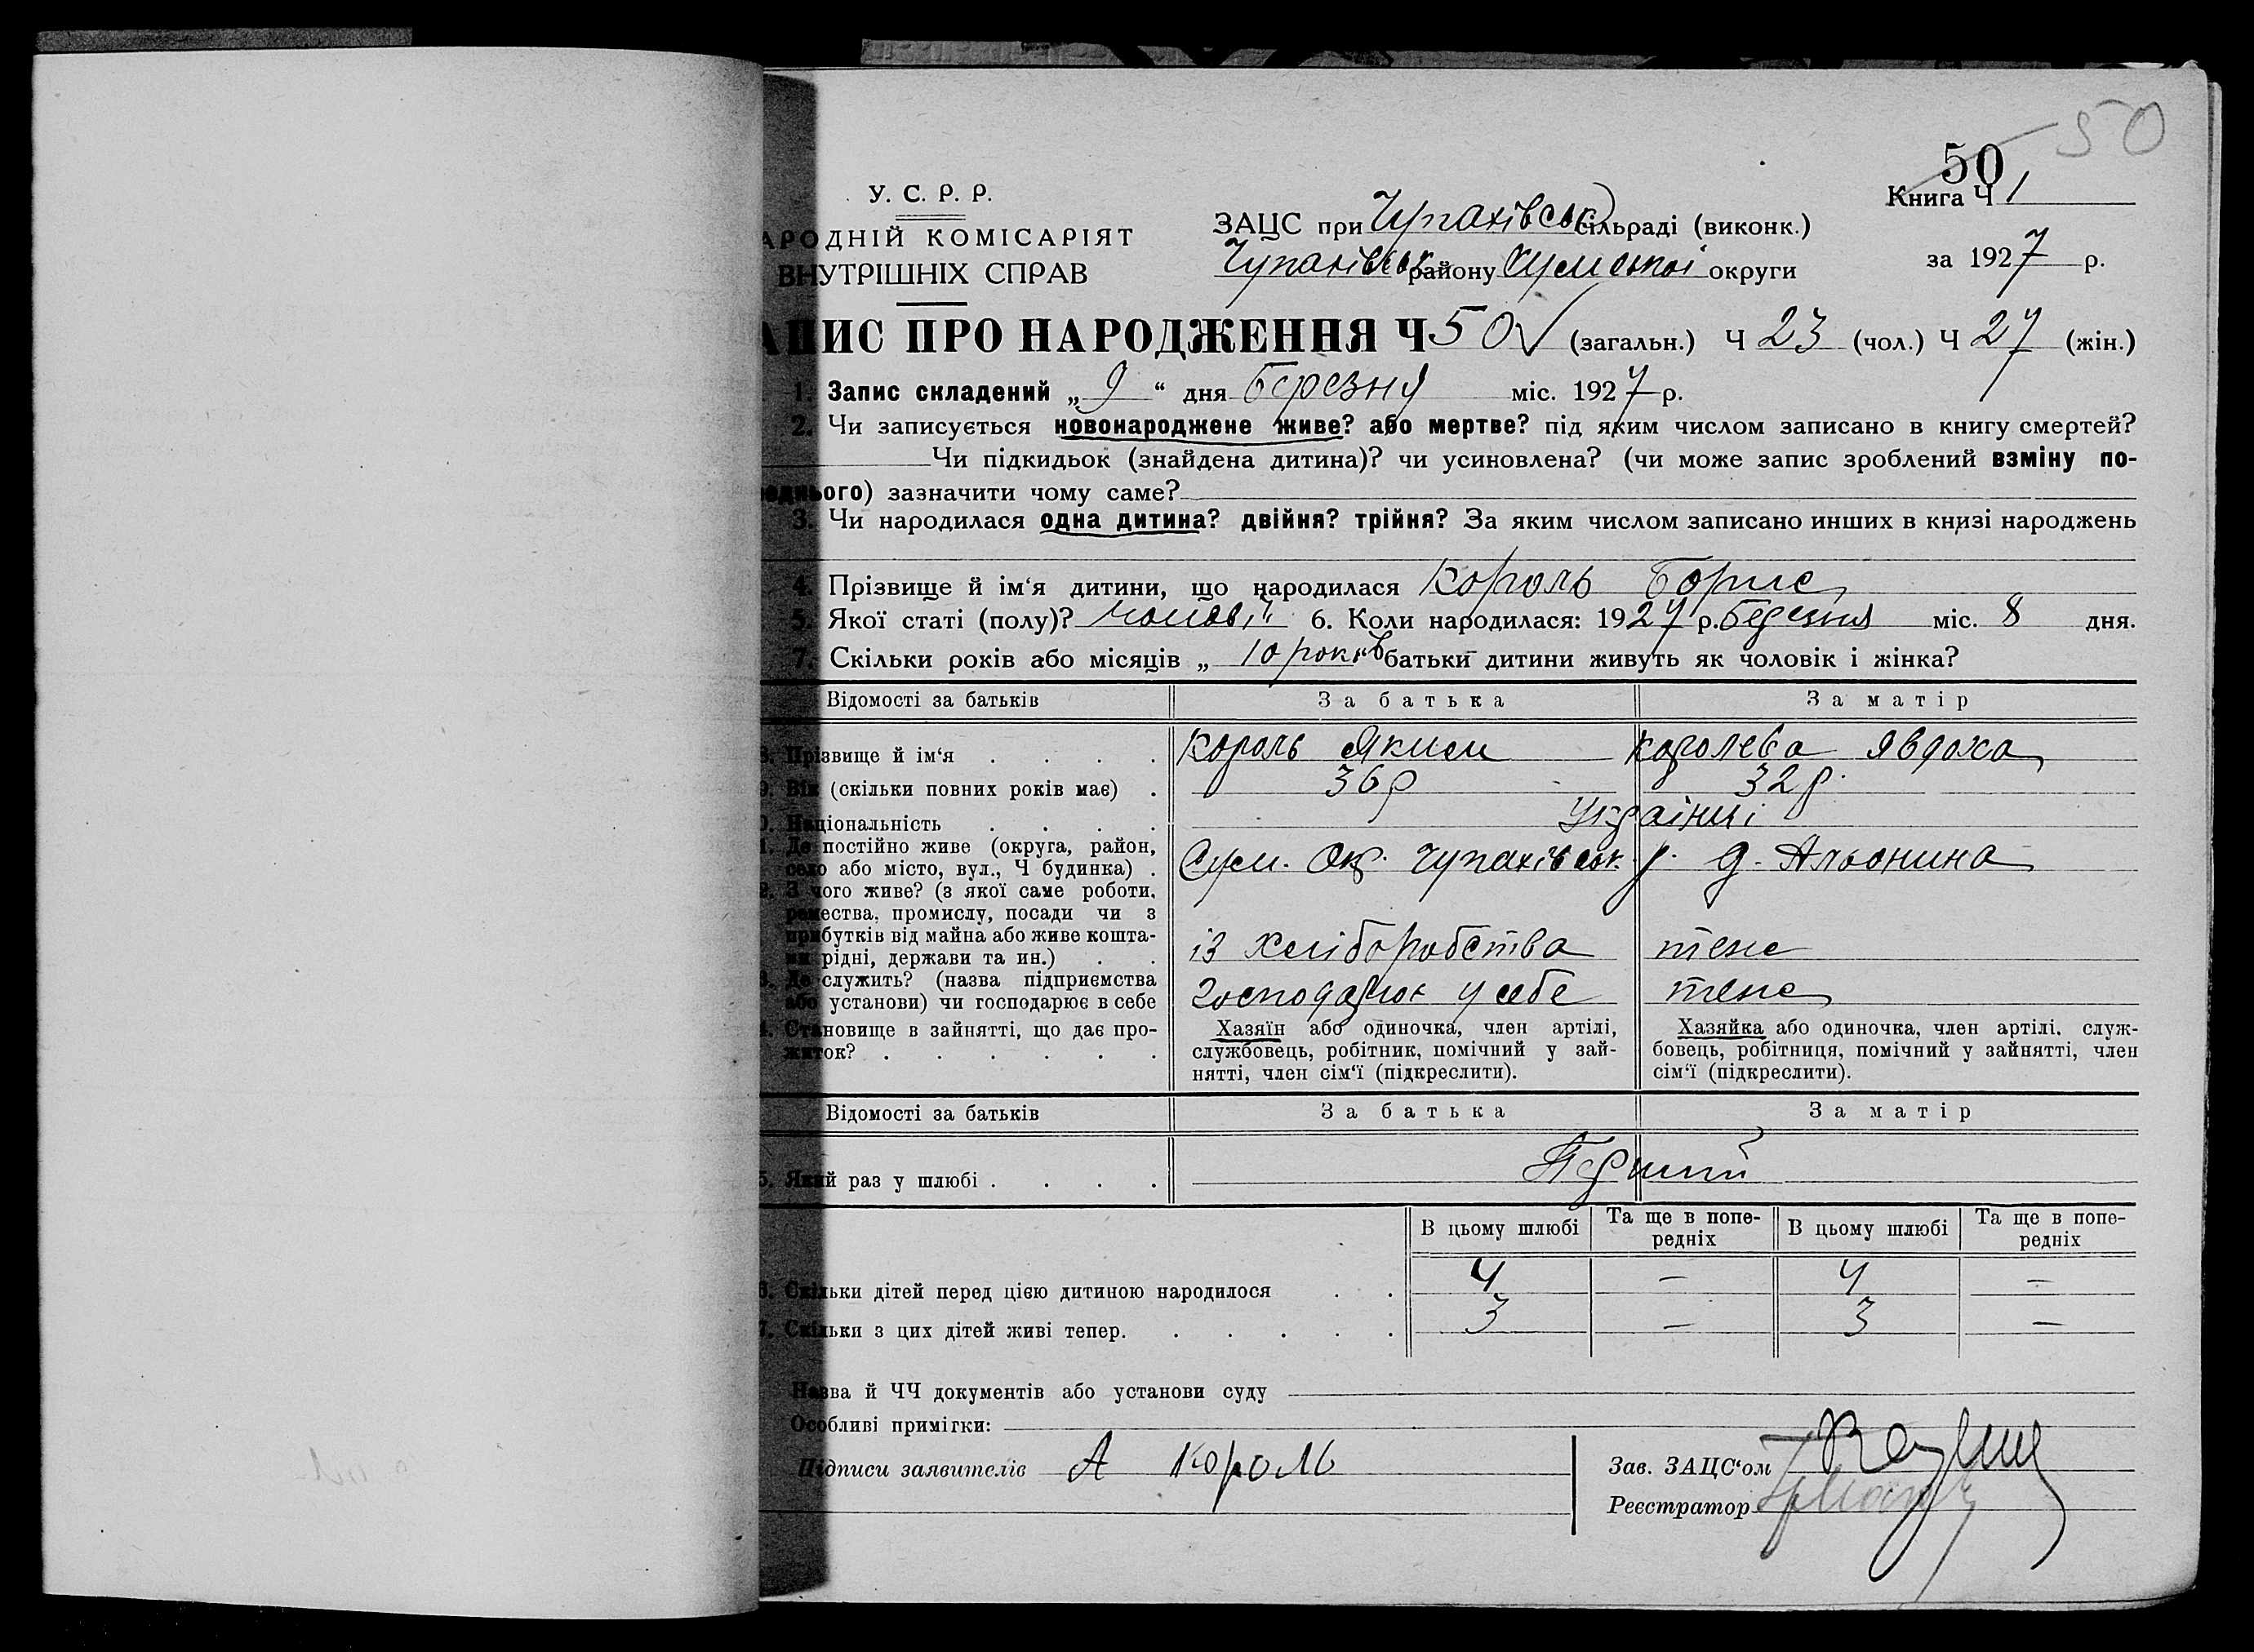 50
50
У. С. Р. Р.
Книга Ч 1
АРОДНІЙ КОМІСАРІЯТ
ЗАЦС при Чупахівськ сільраді (виконк.)
ВНУТРІШНІХ СПРАВ
Чупахівськ району Сумської округи
за 1927 р.
АПИС ПРО НАРОДЖЕННЯ Ч 50 (загальн.) Ч 23 (чол.) Ч 27 (жін.)
1. Запис складений „ 9 “ дня березня міс. 1927 р.
2. Чи записується новонароджене живе? або мертве? під яким числом записано в книгу смертей?
Чи підкидьок (знайдена дитина)? чи усиновлена? (чи може запис зроблений взміну по-
еднього) зазначити чому саме?
3. Чи народилася одна дитина? двійня? трійня? За яким числом записано инших в книзі народжень
4. Прізвище й ім‘я дитини, що народилася Король Борис
5. Якої статі (полу)? чолові 6. Коли народилася: 1927 р. березня міс. 8 дня.
7. Скільки років або місяців „ 10 років батьки дитини живуть як чоловік і жінка?
Відомості за батьків За батька За матір
8. Прізвище й ім‘я Король Яким Королева Явдоха
9. Вік (скільки повних років має) 36 р 32 р.
0. Національність Українці
1. Де постійно живе (округа, район,
село або місто, вул., Ч будинка) Сум. Ок. Чупахівськ. р. д. Альонина
2. З чого живе? (з якої саме роботи,
ремества, промислу, посади чи з
прибутків від майна або живе кошта-
ми рідні, держави та ин.) із хліборобства теж
3. Де служить? (назва підприємства
або установи) чи господарює в себе господарює у себе теж
4. Становище в зайнятті, що дає про-
житок?
Хазяїн або одиночка, член артілі,
службовець, робітник, помічний у зай-
нятті, член сім‘ї (підкреслити).
Хазяйка або одиночка, член артілі, служ-
бовець, робітниця, помічний у зайнятті, член
сім‘ї (підкреслити).
Відомості за батьків За батька За матір
5. Який раз у шлюбі Перший
В цьому шлюбі Та ще в попе-
редніх В цьому шлюбі Та ще в попе-
редніх
6. Скільки дітей перед цією дитиною народилося 4 — 4 —
7. Скільки з цих дітей живі тепер. 3 — 3 —
Назва й ЧЧ документів або установи суду
Особливі примітки:
Підписи заявителів А Король
Зав. ЗАЦС‘ом
Реєстратор